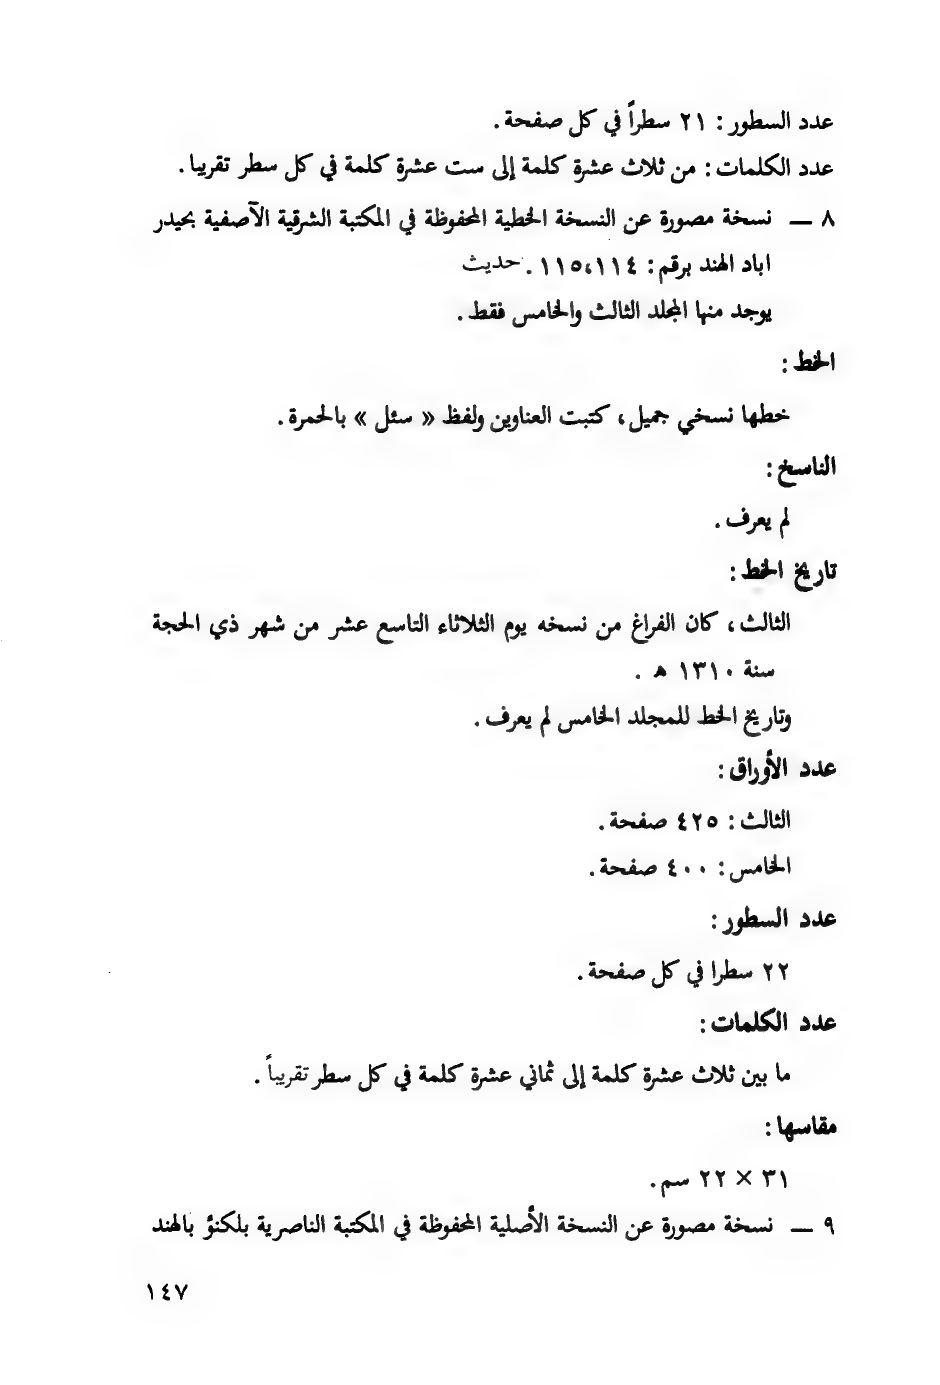 عدد السطور : ٢١ سطراً في كل صفحة .
عدد الكلمات : من ثلاث عشرة كلمة إلى ست عشرة كلمة في كل سطر تقريبا .
٨ ــ نسخة مصورة عن النسخة الخطية المحفوظة في المكتبة الشرقية الآصفية بحيدر
اباد الهند برقم : ١١٥،١١٤ . حديث
يوجد منها المجلد الثالث والخامس فقط .
الخط :
خطها نسخي جميل ، كتبت العناوين ولفظ « سئل » بالحمرة .
الناسخ :
لم يعرف .
تاريخ الخط :
الثالث ، كان الفراغ من نسخه يوم الثلاثاء التاسع عشر من شهر ذي الحجة
سنة ١٣١٠ هـ .
وتاريخ الخط للمجلد الخامس لم يعرف .
عدد الأوراق :
الثالث : ٤٢٥ صفحة .
الخامس : ٤٠٠ صفحة .
عدد السطور :
٢٢ سطرا في كل صفحة .
عدد الكلمات :
ما بين ثلاث عشرة كلمة إلى ثماني عشرة كلمة في كل سطر تقريباً .
مقاسها :
٣١ × ٢٢ سم .
٩ ــ نسخة مصورة عن النسخة الأصلية المحفوظة في المكتبة الناصرية بلكنؤ بالهند
١٤٧